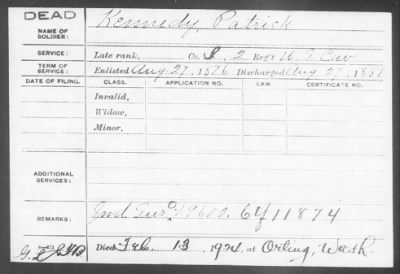 DEAD
NAME OF SOLDIER: Kennedy, Patrick
SERVICE: Late rank, Co. 2 Reg't U.S. Cav
TERM OF SERVICE: Enlisted Aug 27, 1876 Discharged Aug 27, 1881
DATE OF FILING. CLASS. APPLICATION NO. LAW. CERTIFICATE NO.
Invalid,
Widow,
Minor,
ADDITIONAL SERVICES:
REMARKS: Ind. Sur. 19610. Ctf 11874
Died Feb. 13, 1924, at Orting, Wash.